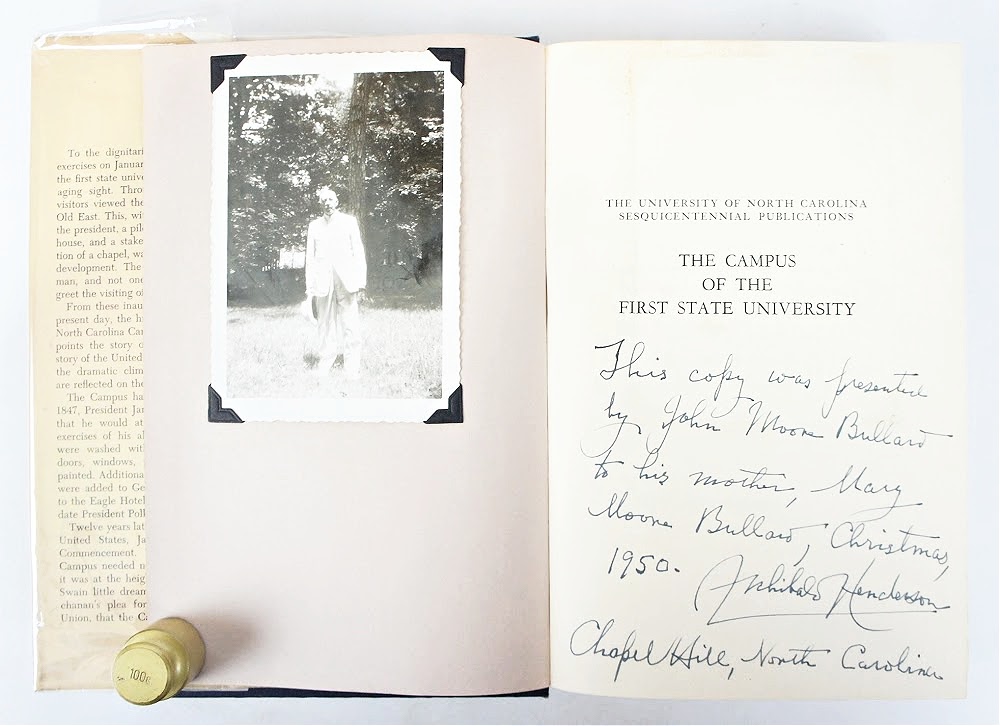 To the dignitari
exercises on Januar
the first state unive
aging sight. Thro
visitors viewed the
Old East. This, wi
the president, a pil
house, and a stake
tion of a chapel, wa
development. The
man, and not one
greet the visiting of
From these inau
present day, the h
North Carolina Car
points the story o
story of the United
the dramatic clim
are reflected on the
The Campus ha
1847, President Jar
that he would at
exercises of his al
were washed wit
doors, windows,
painted. Additiona
were added to Ge
to the Eagle Hotel
date President Polk
Twelve years lat
United States, Ja
Commencement.
Campus needed n
it was at the heig
Swain little dream
chanan's plea for
Union, that the Ca
100g
THE UNIVERSITY OF NORTH CAROLINA
SESQUICENTENNIAL PUBLICATIONS
THE CAMPUS
OF THE
FIRST STATE UNIVERSITY
This copy was presented
by John Moore Bullard
to his mother, Mary
Moore Bullard, Christmas,
1950.
Archibald Henderson
Chapel Hill, North Carolina